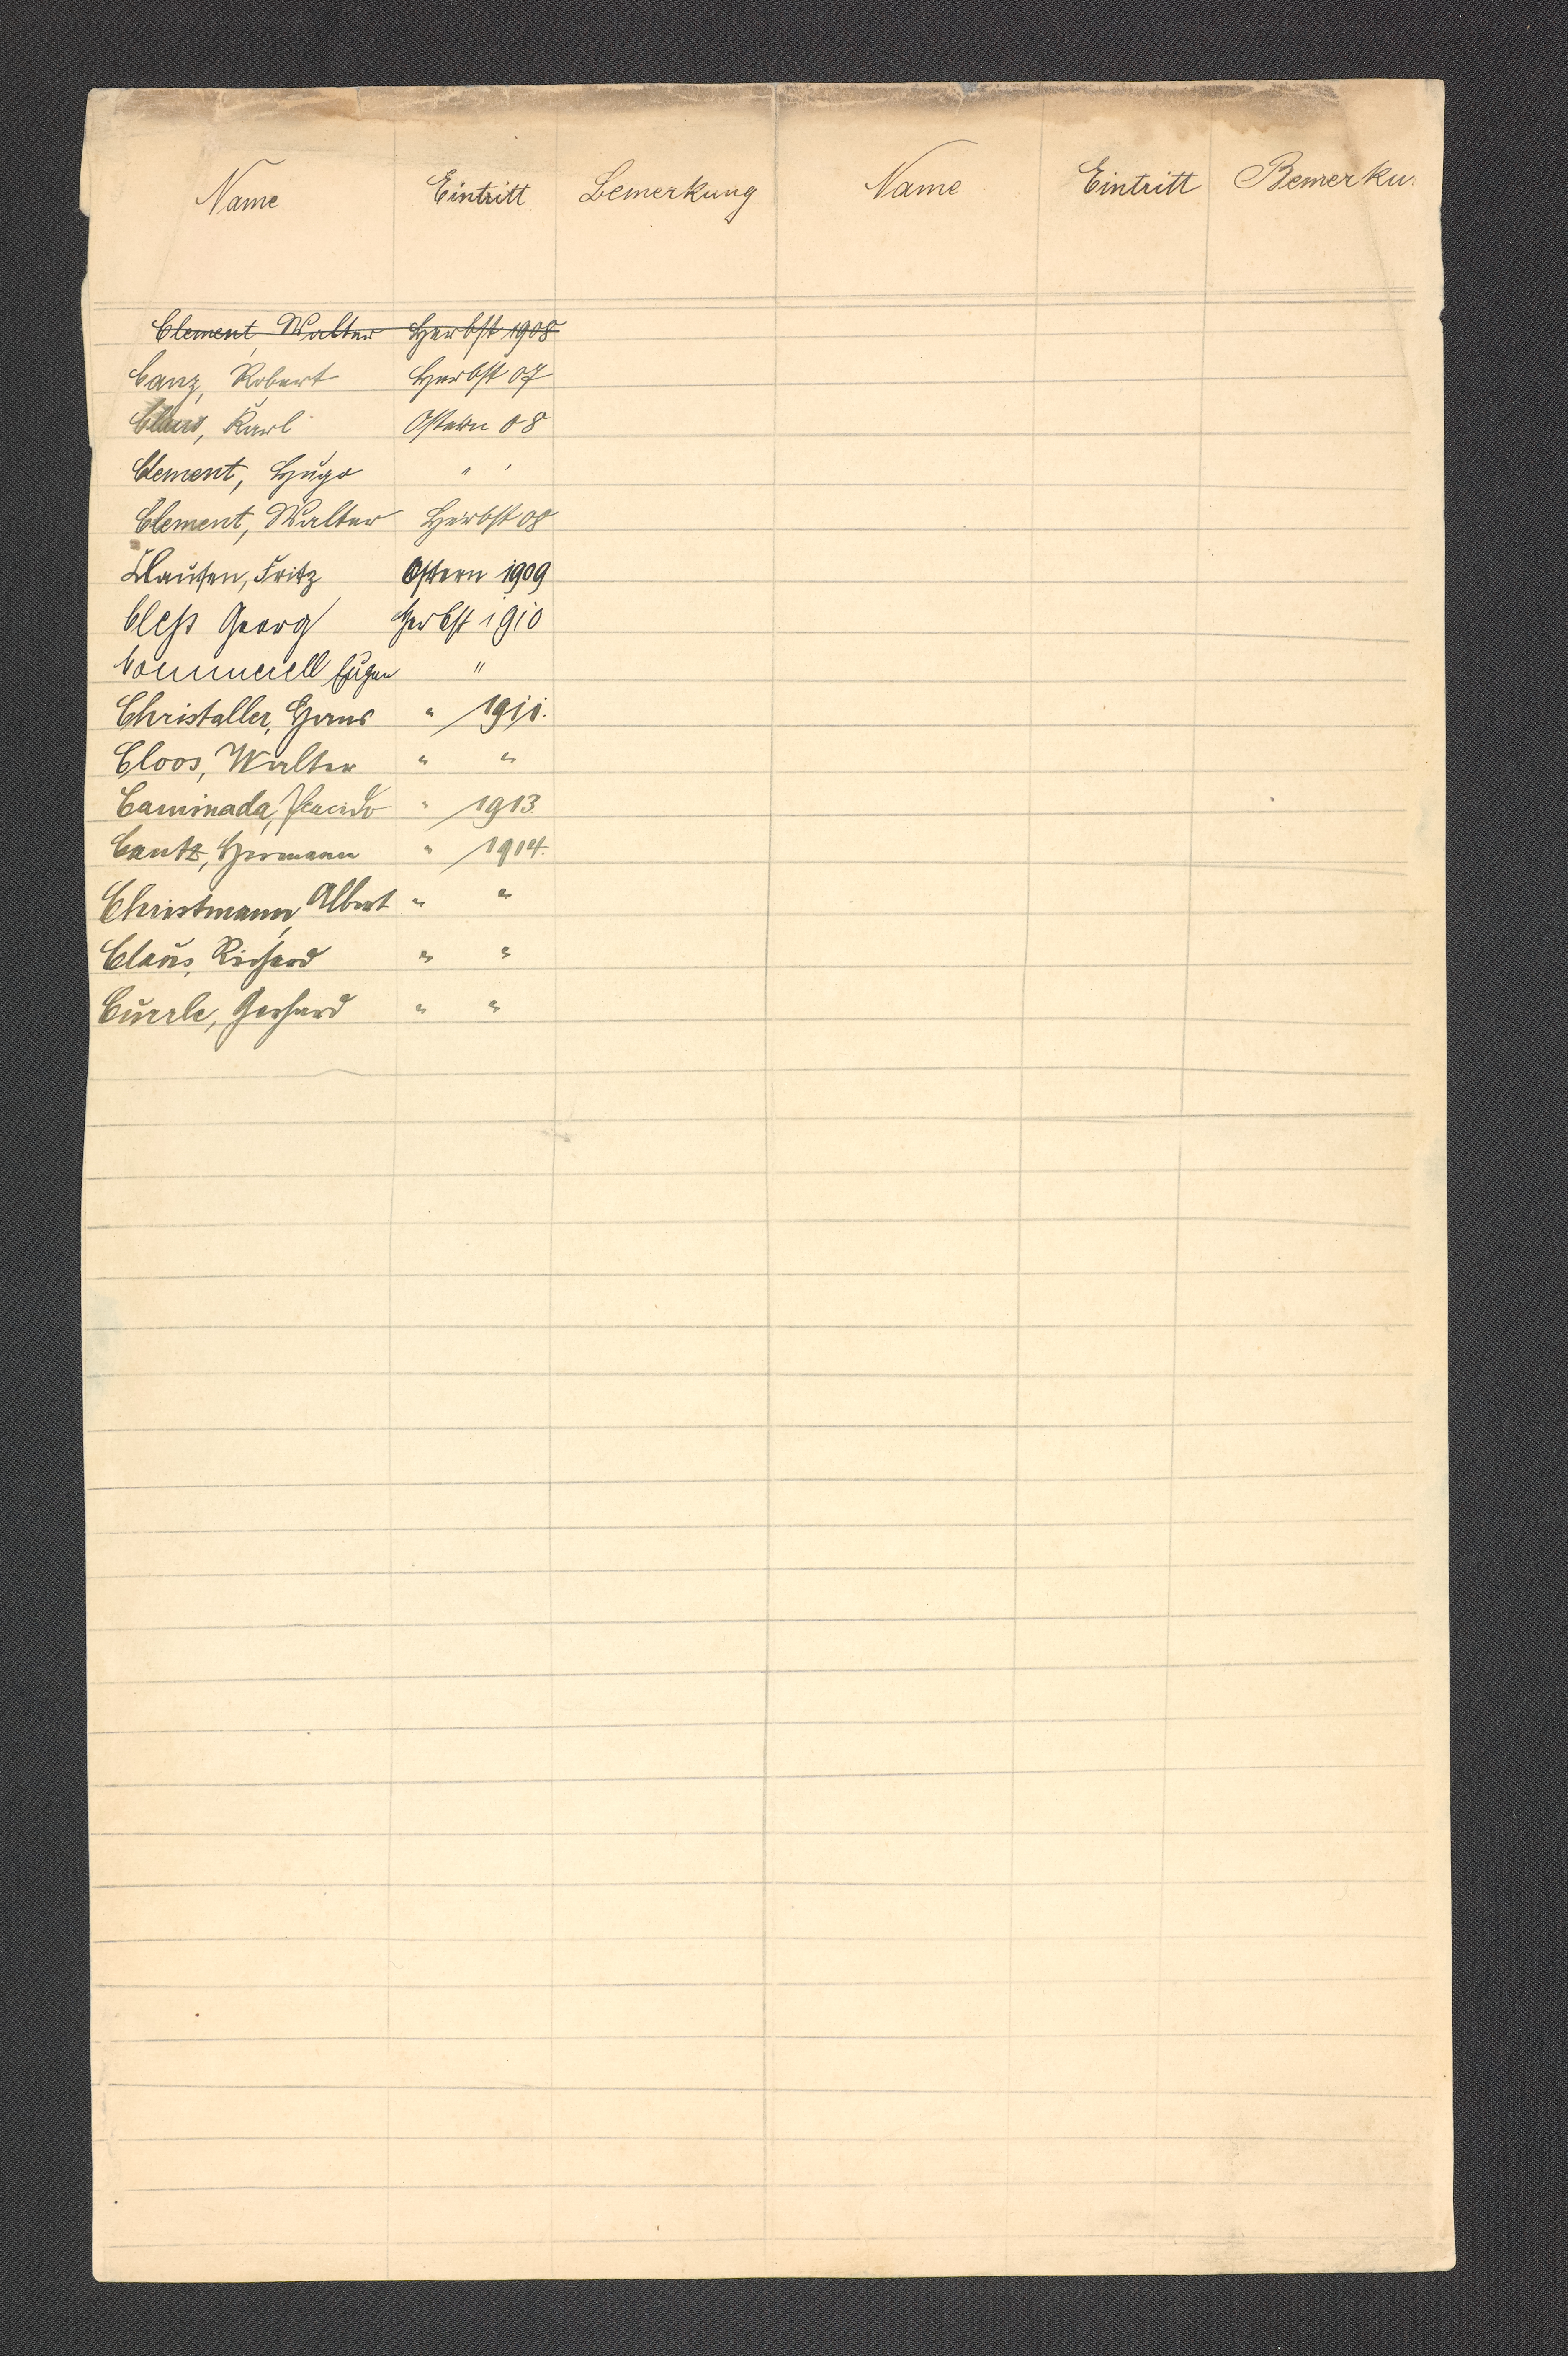 Name Eintritt Bemerkung Name Eintritt Bemerku
Clement, Walter Herbst 1908
Canz, Robert Herbst 07
Claus, Karl Ostern 08
Clement, Hugo " "
Clement, Walter Herbst 08
Clausen, Fritz Ostern 1909
Cleß Georg Herbst 1910
Commerell Eugen "
Christaller, Hans " 1911.
Cloos, Walter " "
Caminada, Placido " 1913.
Cantz, Hermann " 1914.
Christmann, Albert " "
Claus, Richard " "
Currle, Gerhard " "